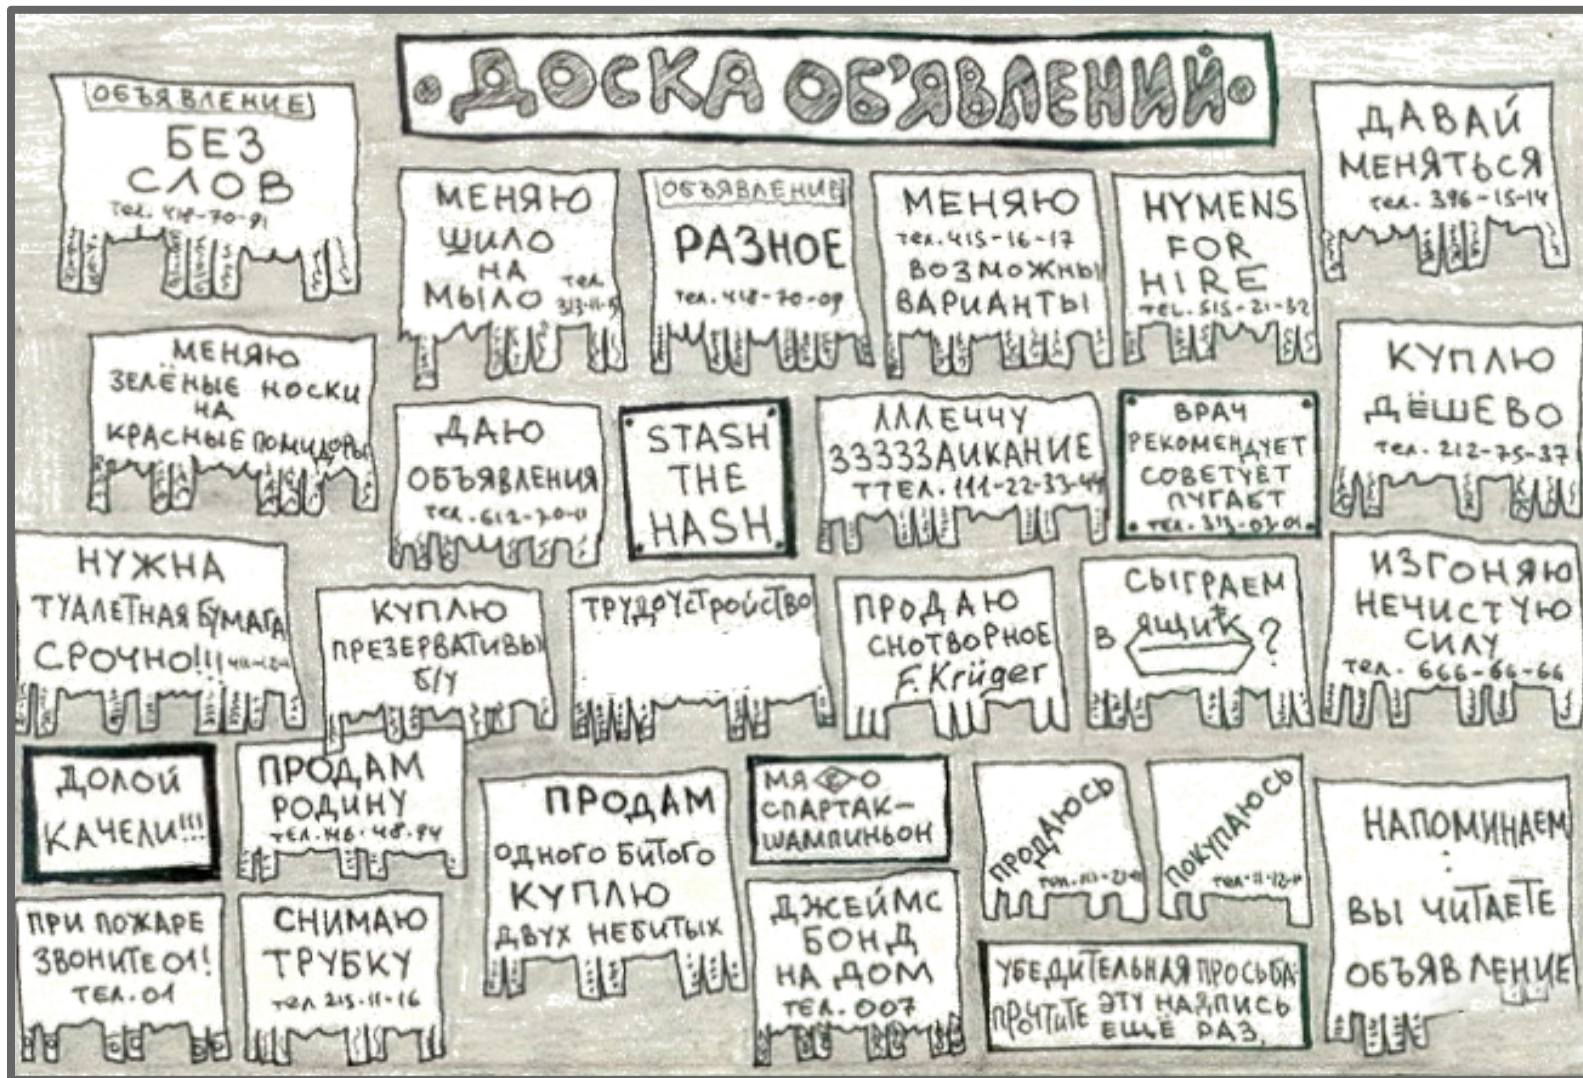 ДОСКА ОБ'ЯВЛЕНИЙ
ОБЪЯВЛЕНИЕ
БЕЗ
СЛОВ
тел. 418-70-91
МЕНЯЮ
ШИЛО
НА
МЫЛО
тел.
ОБЪЯВЛЕНИЕ
РАЗНОЕ
тел. 418-70-09
МЕНЯЮ
тел. 415-16-17
ВОЗМОЖНЫ
ВАРИАНТЫ
HYMENS
FOR
HIRE
TEL. 515-21-32
ДАВАЙ
МЕНЯТЬСЯ
тел. 396-15-14
МЕНЯЮ
ЗЕЛЁНЫЕ НОСКИ
НА
КРАСНЫЕ ПОМИДОРЫ
ДАЮ
ОБЪЯВЛЕНИЯ
тел. 612-70-11
STASH
THE
HASH
ЛЛЛЕЧЧУ
ЗЗЗЗЗАИКАНИЕ
ТТЕЛ. 111-22-33-44
ВРАЧ
РЕКОМЕНДУЕТ
СОВЕТУЕТ
ПУГАЕТ
тел. 313-03-01
КУПЛЮ
ДЁШЕВО
тел. 212-75-37
НУЖНА
ТУАЛЕТНАЯ БУМАГА
СРОЧНО!!!
КУПЛЮ
ПРЕЗЕРВАТИВЫ
Б/У
ТРУДОУСТРОЙСТВО
ПРОДАЮ
СНОТВОРНОЕ
F. Krüger
СЫГРАЕМ
В ЯЩИК?
ИЗГОНЯЮ
НЕЧИСТУЮ
СИЛУ
тел. 666-66-66
ДОЛОЙ
КАЧЕЛИ!!!
ПРОДАМ
РОДИНУ
тел. 46-48-94
ПРОДАМ
ОДНОГО БИТОГО
КУПЛЮ
ДВУХ НЕБИТЫХ
МЯ О
СПАРТАК-
ШАМПИНЬОН
ПРОДАЮСЬ
ПОКУПАЮСЬ
НАПОМИНАЕМ
:
ВЫ ЧИТАЕТЕ
ОБЪЯВЛЕНИЕ
ПРИ ПОЖАРЕ
ЗВОНИТЕ 01!
ТЕЛ. 01
СНИМАЮ
ТРУБКУ
тел 215-11-16
ДЖЕЙМС
БОНД
НА ДОМ
ТЕЛ. 007
УБЕДИТЕЛЬНАЯ ПРОСЬБА:
ПРОЧТИТЕ ЭТУ НАДПИСЬ
ЕЩЁ РАЗ.